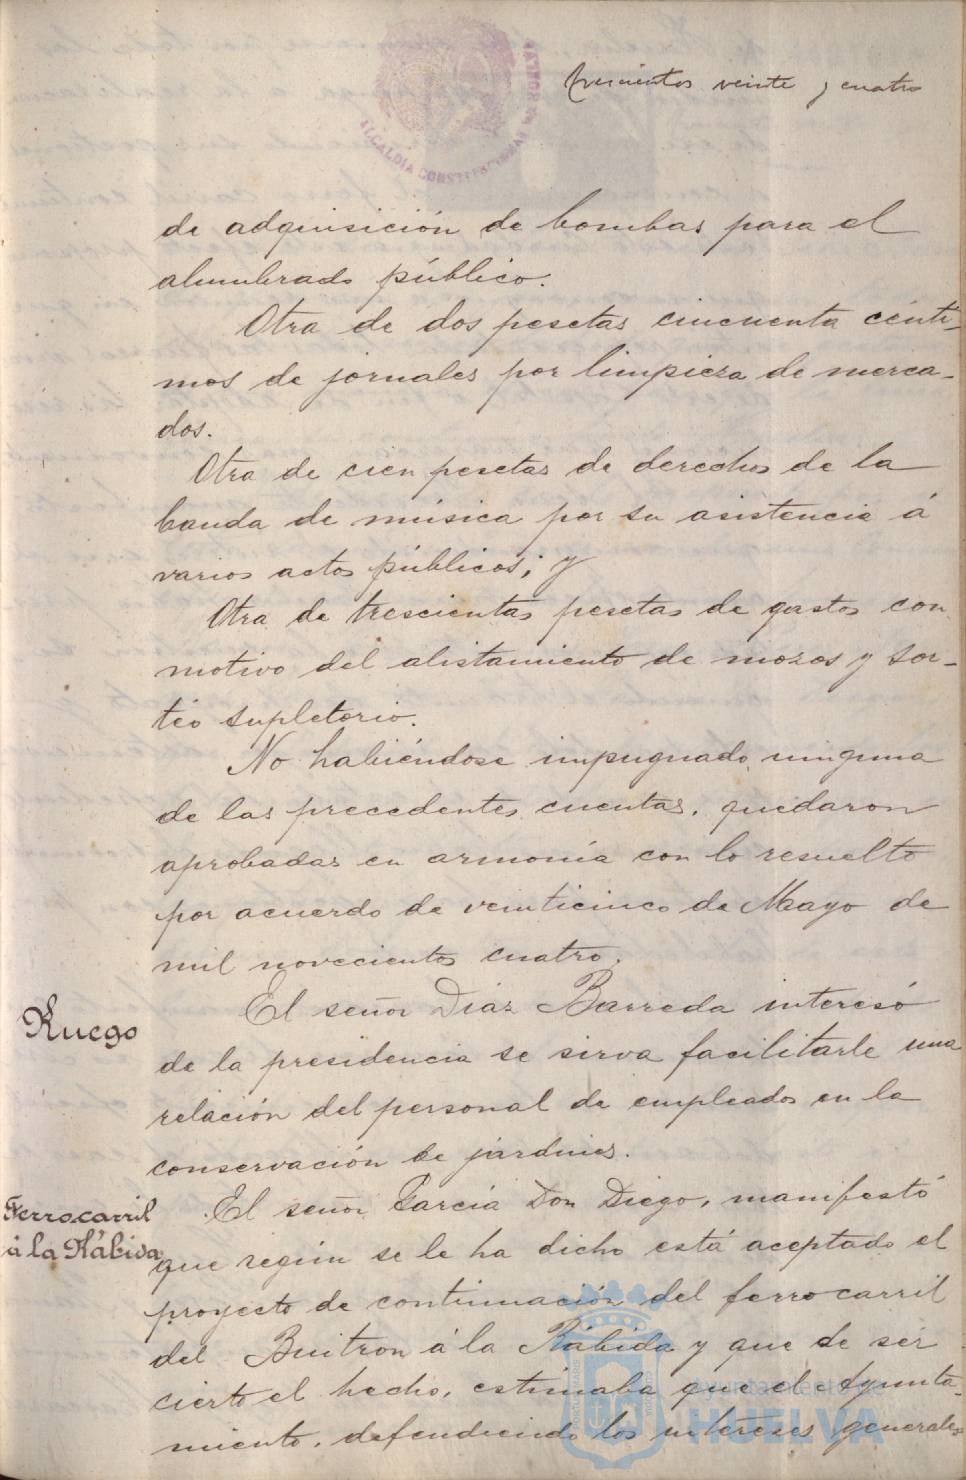 trescientos veinte y cuatro
ALCALDIA CONSTITUCIONAL
de adquisición de bombas para el
alumbrado público.
Otra de dos pesetas cincuenta cénti-
mos de jornales por limpieza de merca-
dos.
Otra de cien pesetas de derechos de la
banda de música por su asistencia á
varios actos públicos; y
Otra de trescientas pesetas de gastos con
motivo del alistamiento de mozos y sor-
téo supletorio.
No habiéndose impugnado ninguna
de las precedentes cuentas, quedaron
aprobadas en armonía con lo resuelto
por acuerdo de veinticinco de Mayo de
mil novecientos cuatro.
Ruego
El señor Díaz Barreda interesó
de la presidencia se sirva facilitarle una
relación del personal de empleados en la
conservación de jardines.
Ferrocarril
á la Rábida
El señor García Don Diego, manifestó
que según se le ha dicho está aceptado el
proyecto de continuación del ferrocarril
del Buitron á la Rábida y que de ser
cierto el hecho, estimaba que el Ayunta-
miento, defendiendo los intereses generales
Ayuntamiento de
HUELVA